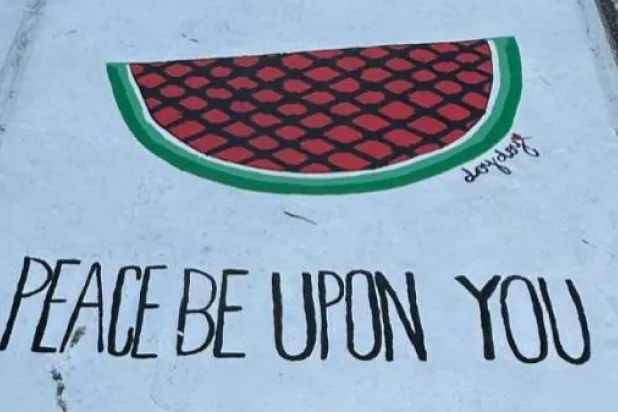 PEACE BE UPON YOU